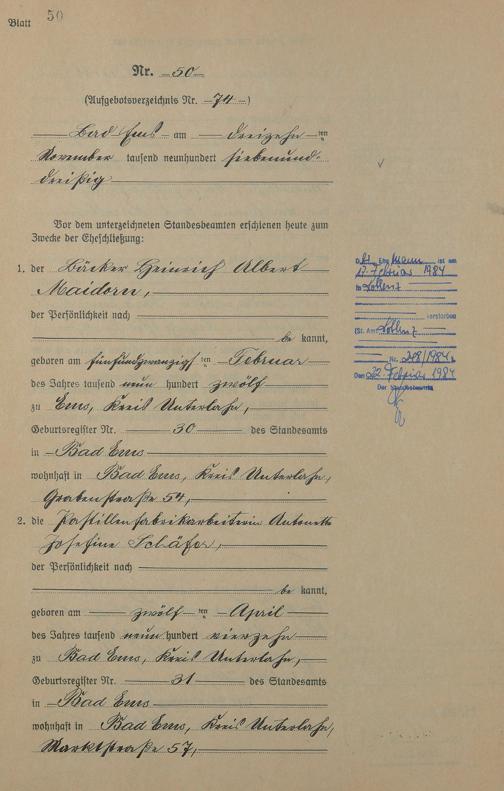 Blatt 50
Nr. 50
(Aufgebotsverzeichnis Nr. 74)
Bad Ems am dreizehn ten
November tausend neunhundert siebenund-
dreißig
Vor dem unterzeichneten Standesbeamten erschienen heute zum
Zwecke der Eheschließung:
1. der Bäcker Heinrich Albert
Maidorn,
der Persönlichkeit nach
be kannt,
geboren am fünfundzwanzigs ten Februar
des Jahres tausend neun hundert zwölf
zu Ems, Kreis Unterlahn,
Geburtsregister Nr. 30 des Standesamts
in Bad Ems
wohnhaft in Bad Ems, Kreis Unterlahn,
Grabenstraße 54,
2. die Pastillenfabrikarbeiterin Antonette
Josefine Schäfer,
der Persönlichkeit nach
be kannt,
geboren am zwölf ten April
des Jahres tausend neun hundert vierzehn
zu Bad Ems, Kreis Unterlahn,
Geburtsregister Nr. 31 des Standesamts
in Bad Ems
wohnhaft in Bad Ems, Kreis Unterlahn,
Marktstraße 57,
Der Ehemann ist am
17. Februar 1984
in Koblenz
verstorben
(St. Amt Koblenz
Nr. 208/1984)
Den 22. Februar 1984
Der Standesbeamte